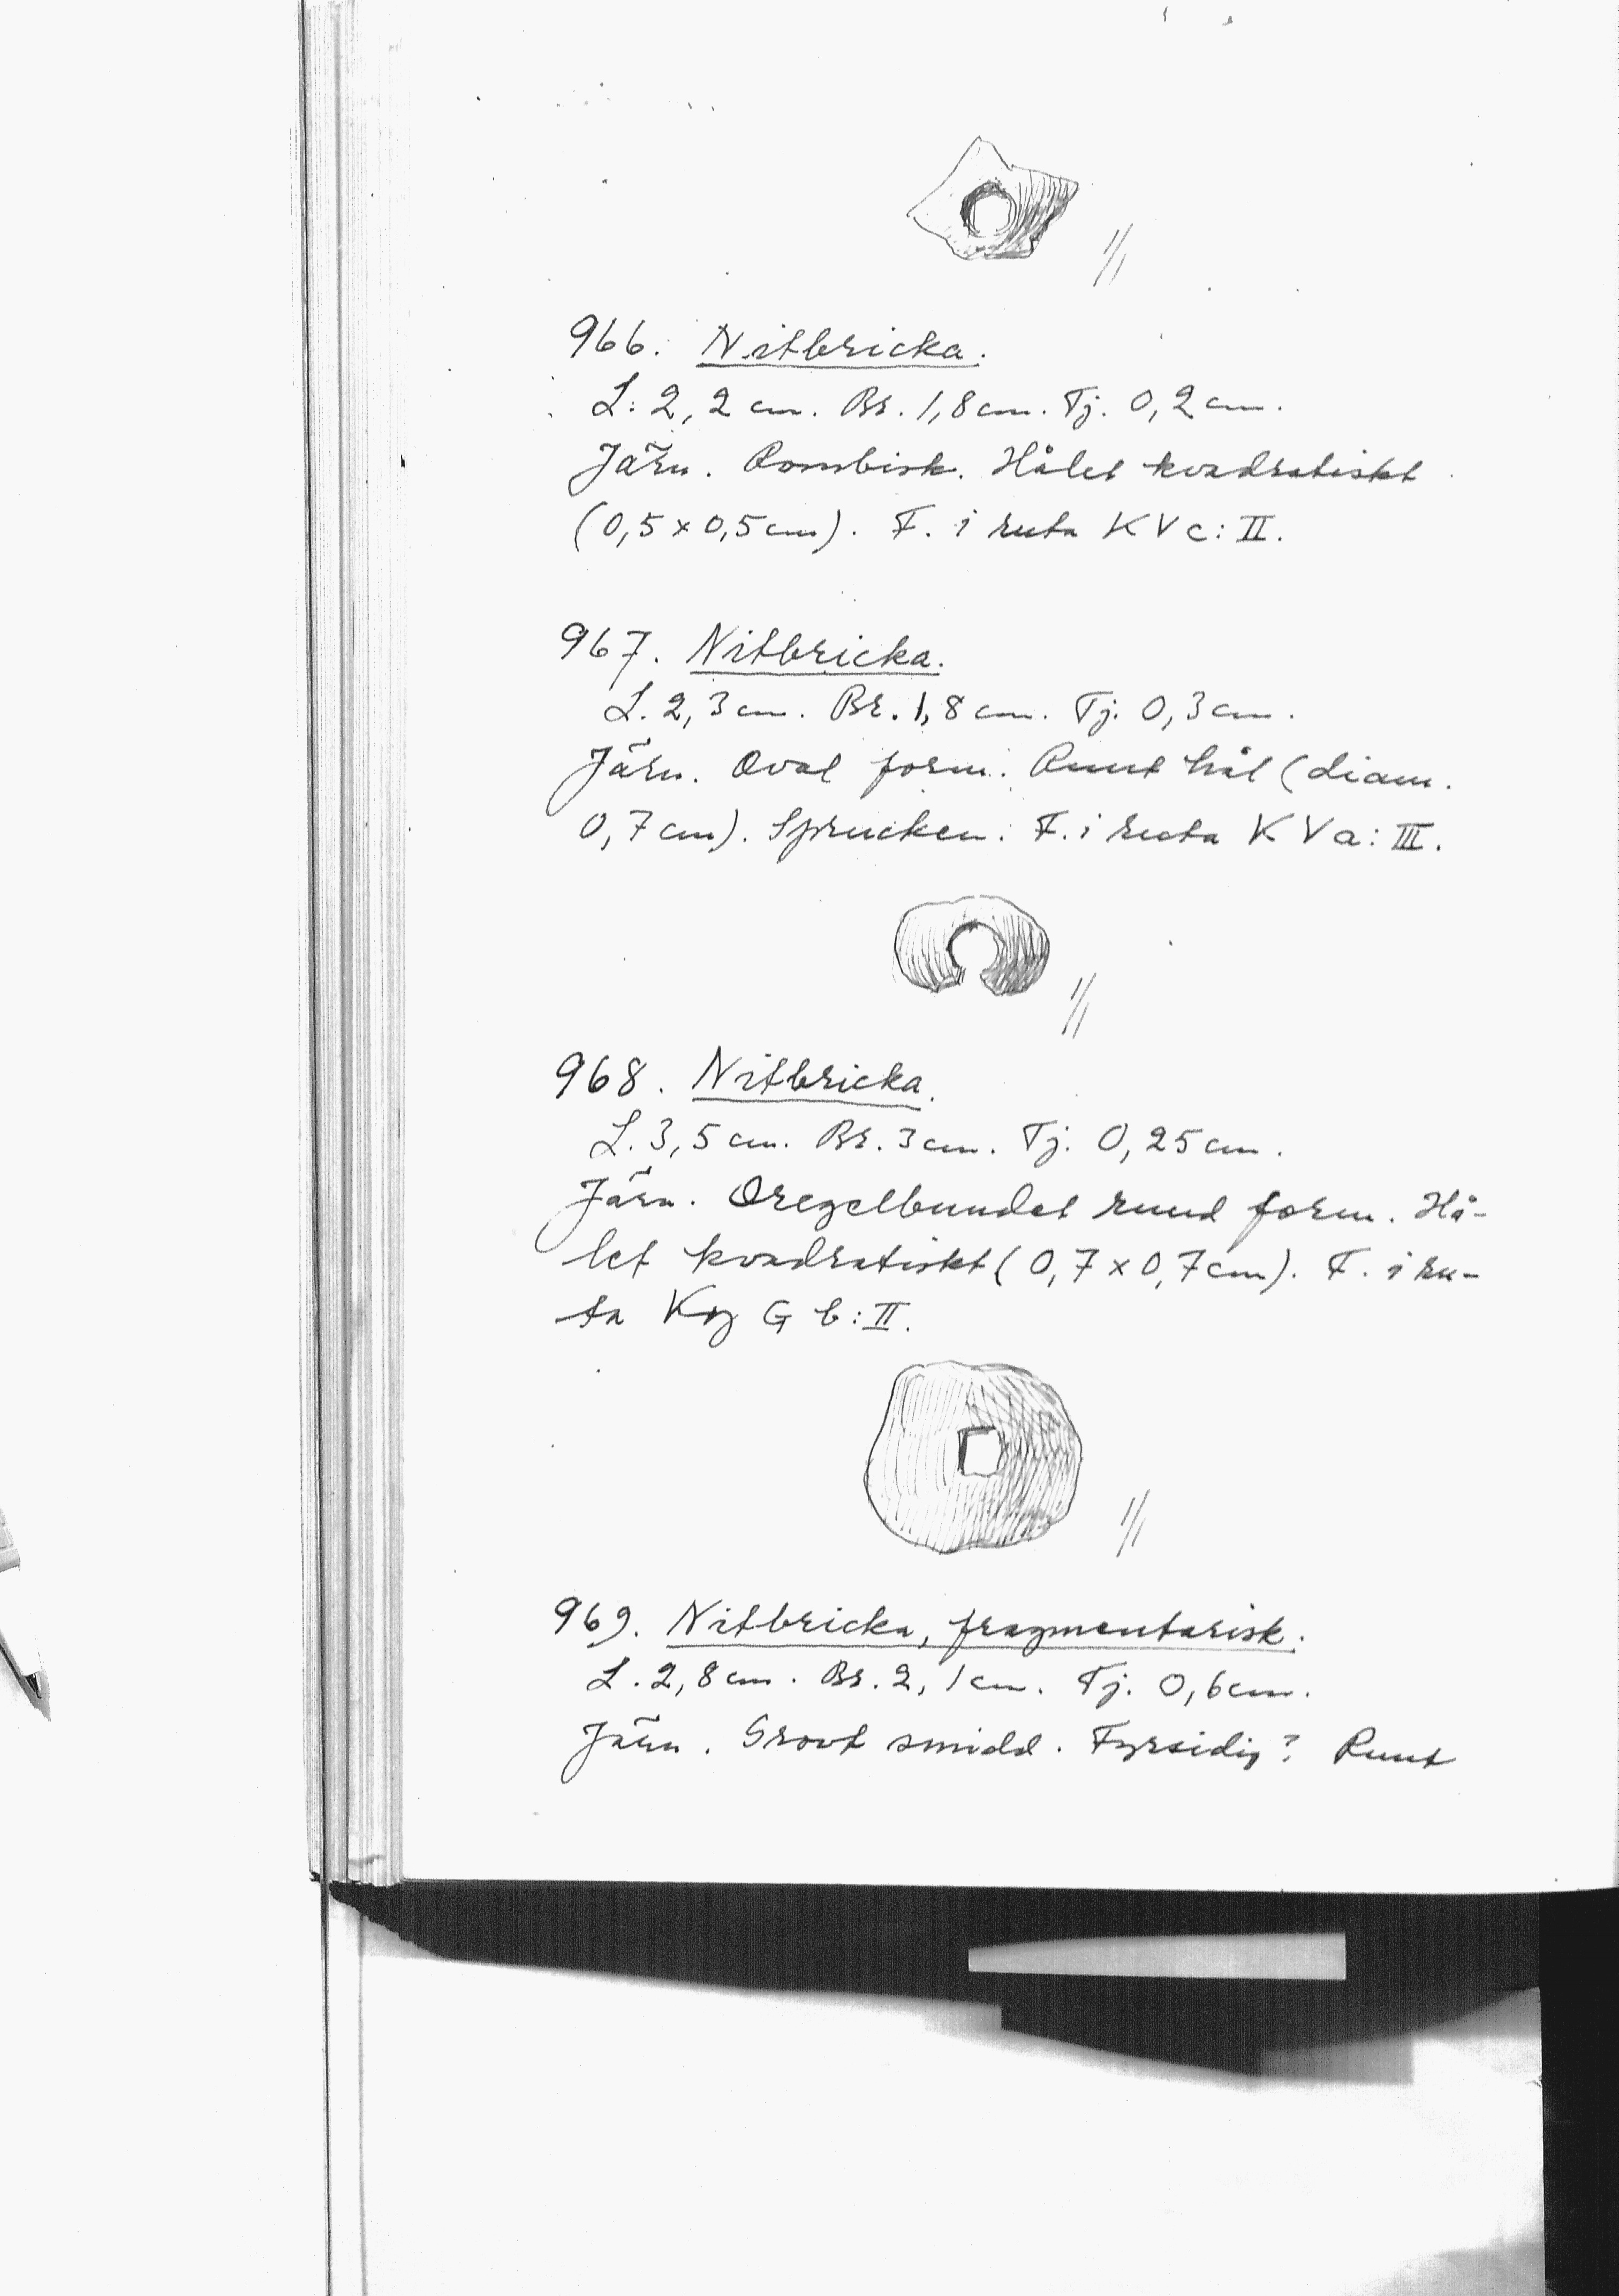 1/1
966. Nitbricka.
L: 2,2 cm. Br. 1,8 cm. Tj. 0,2 cm.
Järn. Rombisk. Hålet kvadratiskt
(0,5 x 0,5 cm). F. i ruta K V c: II.
967. Nitbricka.
L. 2,3 cm. Br. 1,8 cm. Tj. 0,3 cm.
Järn. Oval form. Runt hål (diam.
0,7 cm). Sprucken. F. i ruta K V a: III.
1/1
968. Nitbricka.
L. 3,5 cm. Br. 3 cm. Tj. 0,25 cm.
Järn. Oregelbundet rund form. Hå-
let kvadratiskt (0,7 x 0,7 cm). F. i ru-
ta G b: II.
1/1
969. Nitbricka, fragmentarisk.
L. 2,8 cm. Br. 2,1 cm. Tj. 0,6 cm.
Järn. Grovt smidd. Fyrsidig? Runt